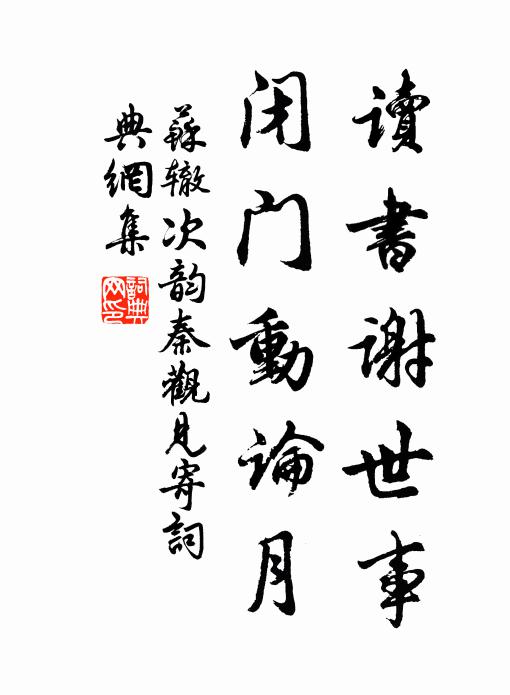 讀書謝世事
闭门動論月
蘇辙次韵秦觀見寄詞
典網集
詞典网印